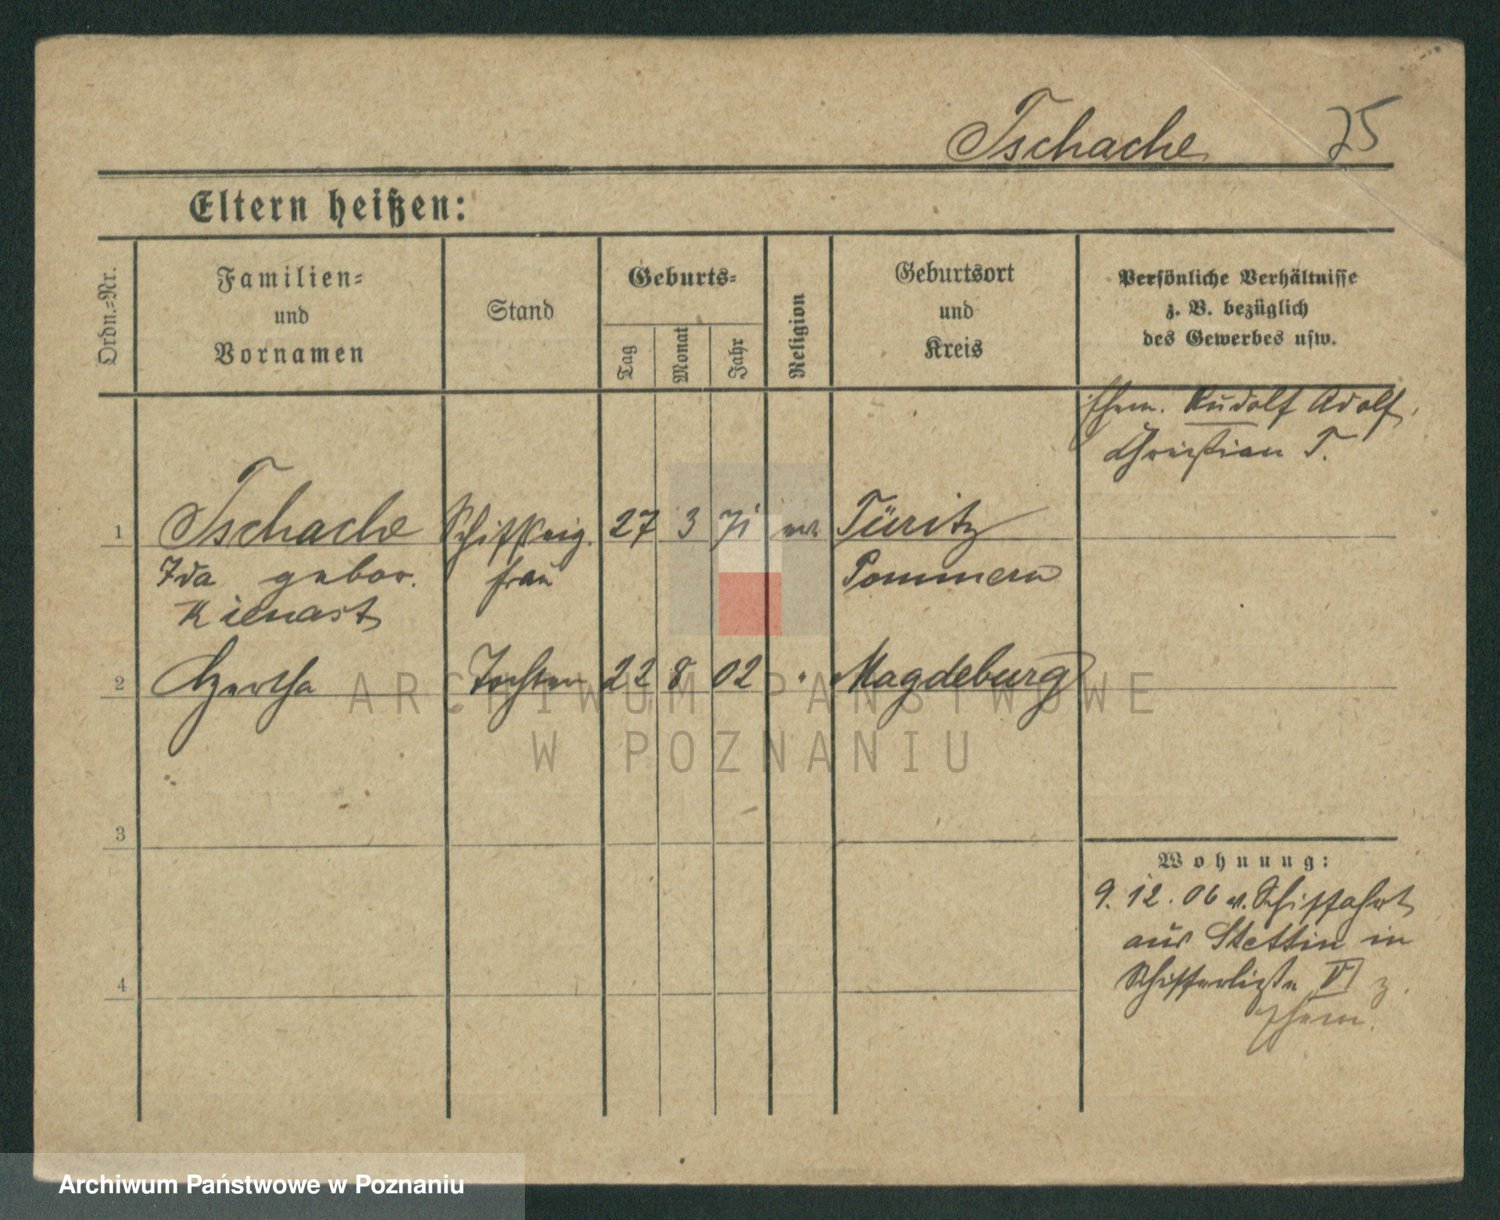 Tschache 75
Eltern heißen:
Ordn.-Nr.
Familien-
und
Vornamen
Stand
Geburts-
Tag
Monat
Jahr
Religion
Geburtsort
und
Kreis
Persönliche Verhältnisse
z. B. bezüglich
des Gewerbes usw.
Ehem. Rudolf Adolf
Christian T.
1 Tschache 27 3 71 Türitz
Ida gebor. frau Pommern
Kienast
2 Hertha Tochter 22 8 02 " Magdeburg
3
4
Wohnung:
9. 12. 06 v. Schiffahrt
aus Stettin in
Schifferliste VI z.
Ehem.
ARCHIWUM PAŃSTWOWE
W POZNANIU
Archiwum Państwowe w Poznaniu